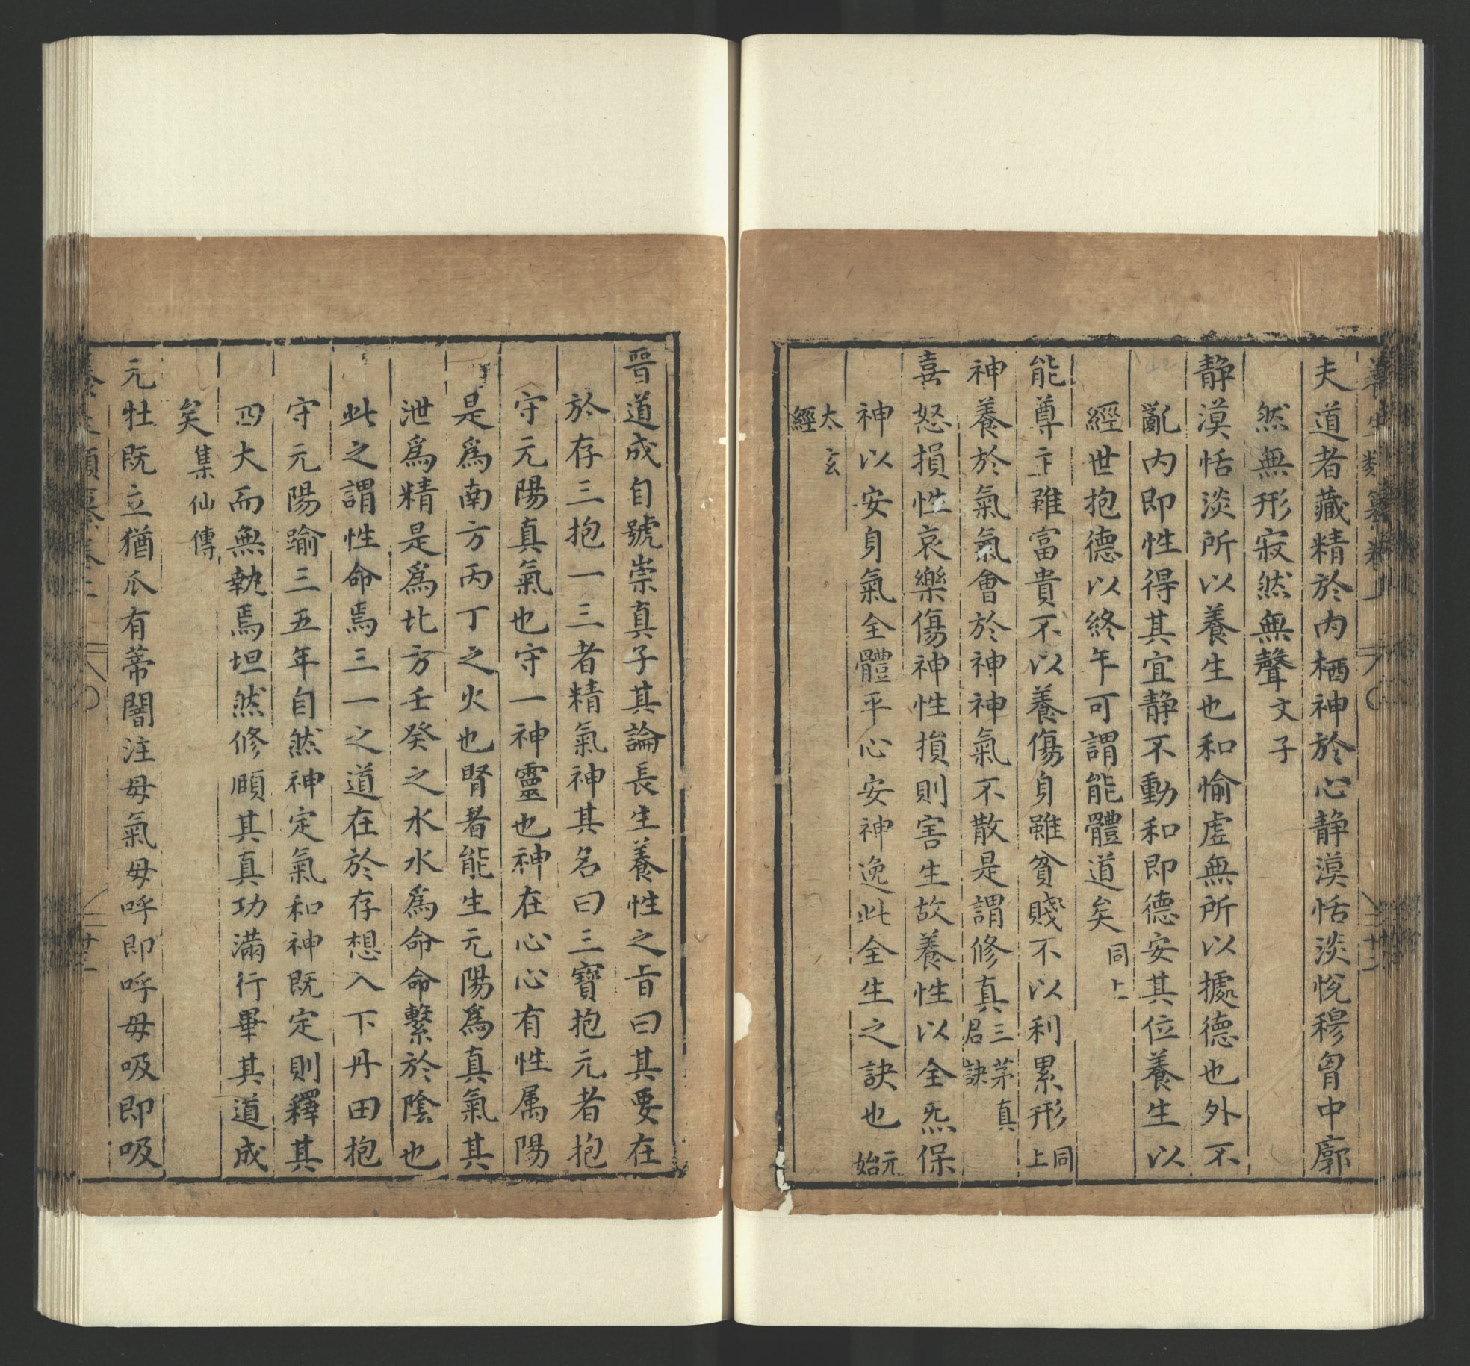 夫道者藏精於内栖神於心静漠恬淡悅穆胷中廓
然無形寂然無聲文子
静漠恬淡所以養生也和愉虚無所以據德也外不
亂内即性得其宜静不動和即德安其位養生以
經世抱德以終年可謂能體道矣同上
能尊主雖富貴不以養傷身雖貧賤不以利累形同上
神養於氣氣會於神神氣不散是謂修真三茅真君訣
喜怒損性哀樂傷神性損則害生故養性以全炁保
神以安身氣全體平心安神逸此全生之訣也元始
太玄經
晉道成自號崇真子其論長生養性之旨曰其要在
於存三抱一三者精氣神其名曰三寶抱元者抱
守元陽真氣也守一神靈也神在心心有性属陽
是爲南方丙丁之火也腎者能生元陽爲真氣其
泄爲精是爲北方壬癸之水水爲命命繫於陰也
此之謂性命焉三一之道在於存想入下丹田抱
守元陽踰三五年自然神定氣和神既定則釋其
四大而無執焉坦然修頤其真功滿行畢其道成
矣集仙傳
元牡既立猶爪有蒂闇注母氣母呼即呼母吸即吸